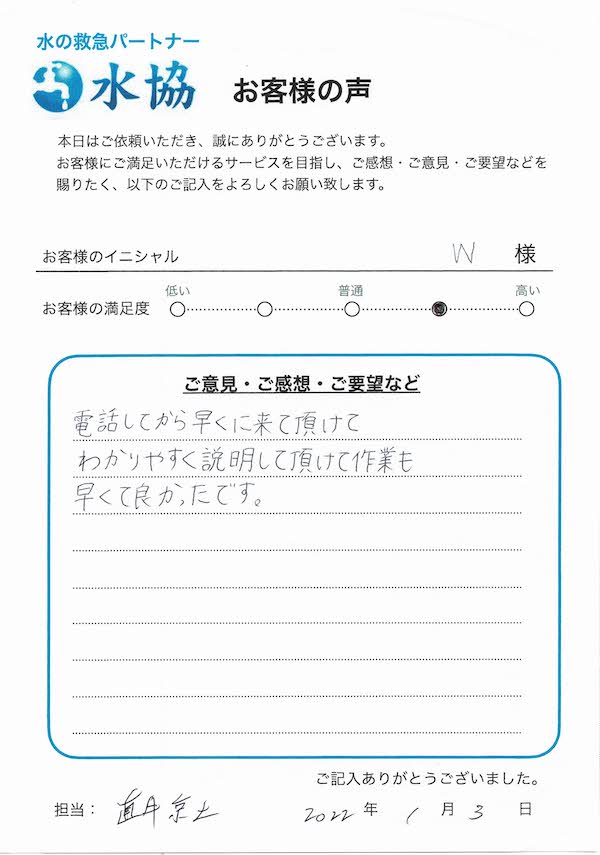 水の救急パートナー
水協 お客様の声
本日はご依頼いただき、誠にありがとうございます。
お客様にご満足いただけるサービスを目指し、ご感想・ご意見・ご要望などを
賜りたく、以下のご記入をよろしくお願い致します。
お客様のイニシャル W 様
低い 普通 高い
お客様の満足度
ご意見・ご感想・ご要望など
電話してから早くに来て頂けて
わかりやすく説明して頂けて作業も
早くて良かったです。
ご記入ありがとうございました。
担当： 直井 京士 2022 年 1 月 3 日